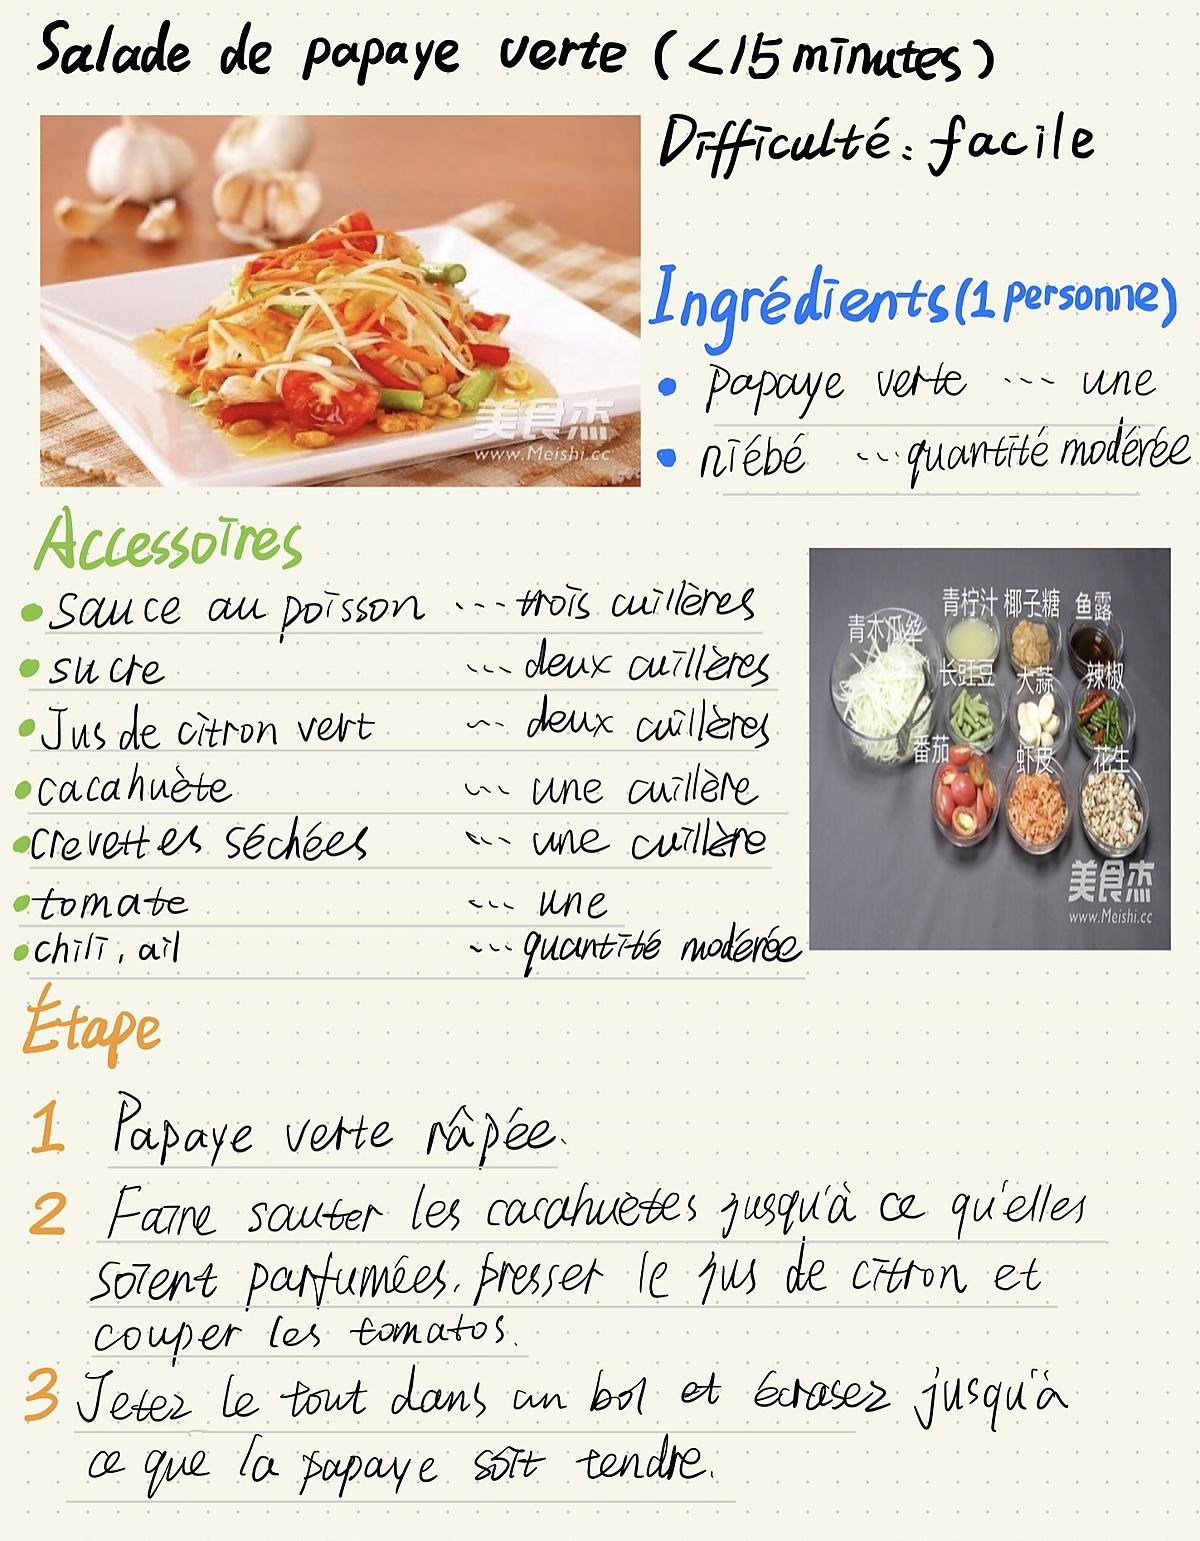 Salade de papaye verte (<15 minutes)
Difficulté: facile
Ingrédients (1 personne)
papaye verte --- une
niébé --- quantité modérée
美食杰
www.Meishi.cc
Accessoires
sauce au poisson --- trois cuillères
sucre --- deux cuillères
Jus de citron vert --- deux cuillères
cacahuète --- une cuillère
crevettes séchées --- une cuillère
tomate --- une
chili, ail --- quantité modérée
青柠汁 椰子糖 鱼露
青木瓜丝
长豇豆 大蒜 辣椒
番茄 虾皮 花生
美食杰
www.Meishi.cc
Étape
1 Papaye verte râpée.
2 Faire sauter les cacahuètes jusqu'à ce qu'elles
soient parfumées, presser le jus de citron et
couper les tomatos.
3 Jetez le tout dans un bol et écrasez jusqu'à
ce que la papaye soit tendre.